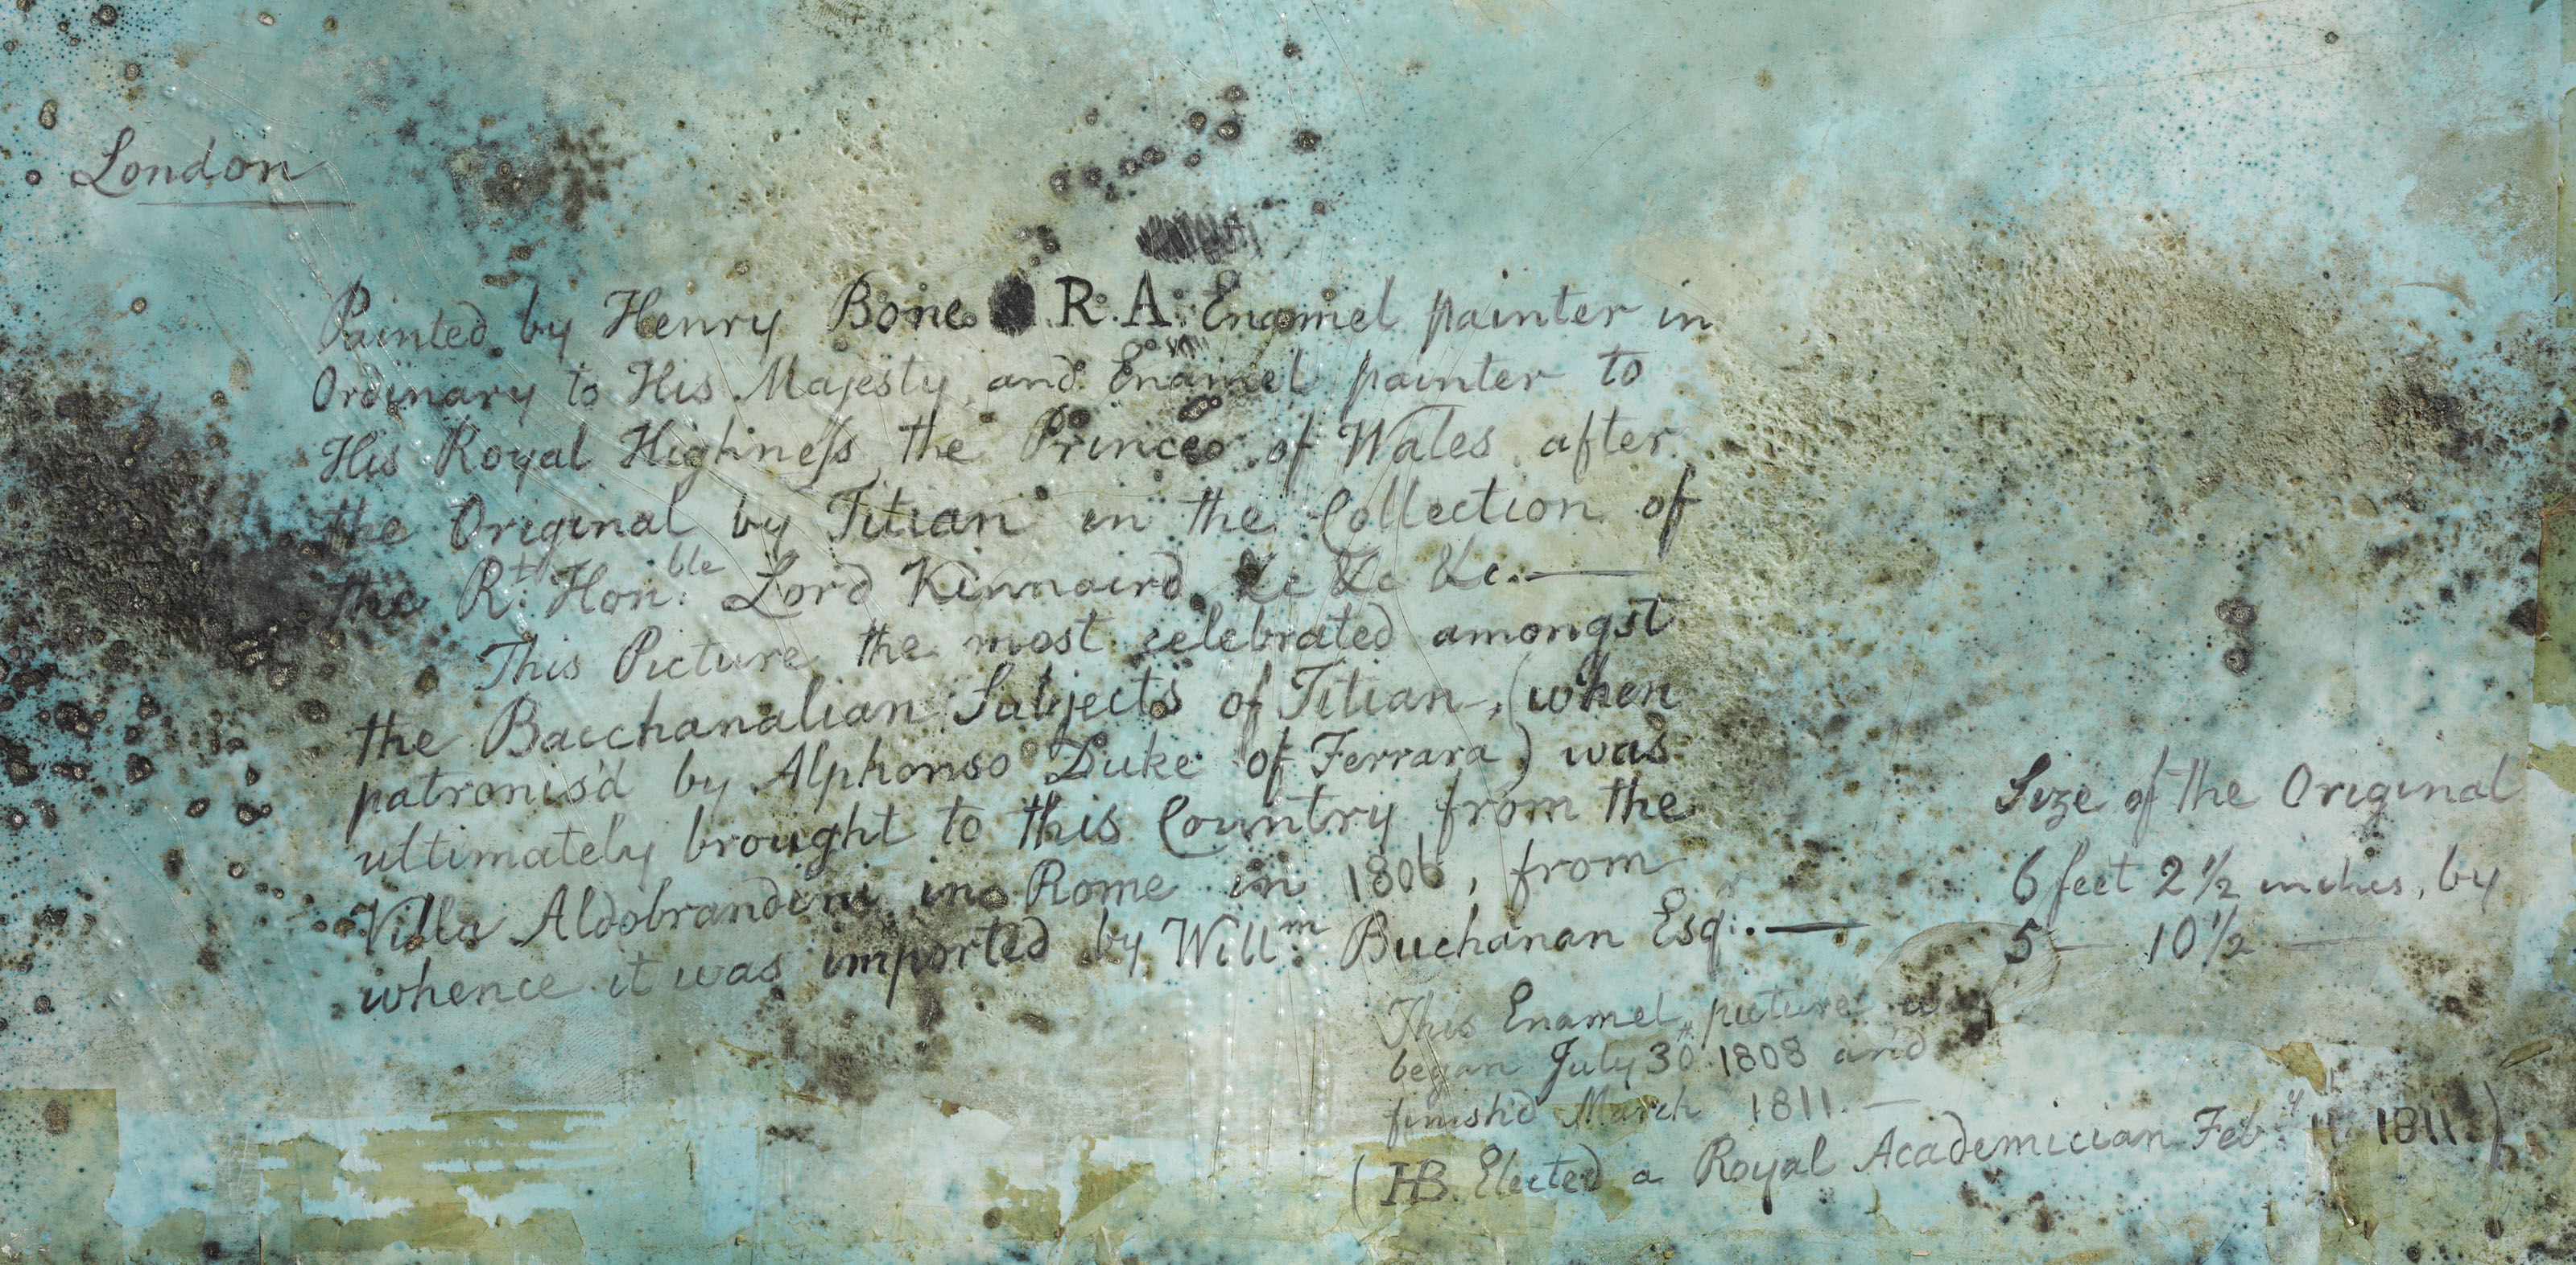 London
Painted by Henry Bone R.A. Enamel painter in
Ordinary to His Majesty, and Enamel painter to
His Royal Highneſs the Prince of Wales after
the Original by Titian in the Collection of
the Rt. Honble. Lord Kinnaird, &c &c &c. —
This Picture the most celebrated amongst
the Bacchanalian Subjects of Titian, (when
patronis'd by Alphonso Duke of Ferrara) was
ultimately brought to this Country from the
Villa Aldobrandini in Rome in 1806, from
whence it was imported by Willm. Buchanan Esqr. —
Size of the Original
6 feet 2 ½ inches, by
5 — 10 ½ —
This Enamel picture was
began July 30th 1808 and
finish'd March 1811. —
(HB. Elected a Royal Academician Feby. 11 1811.)